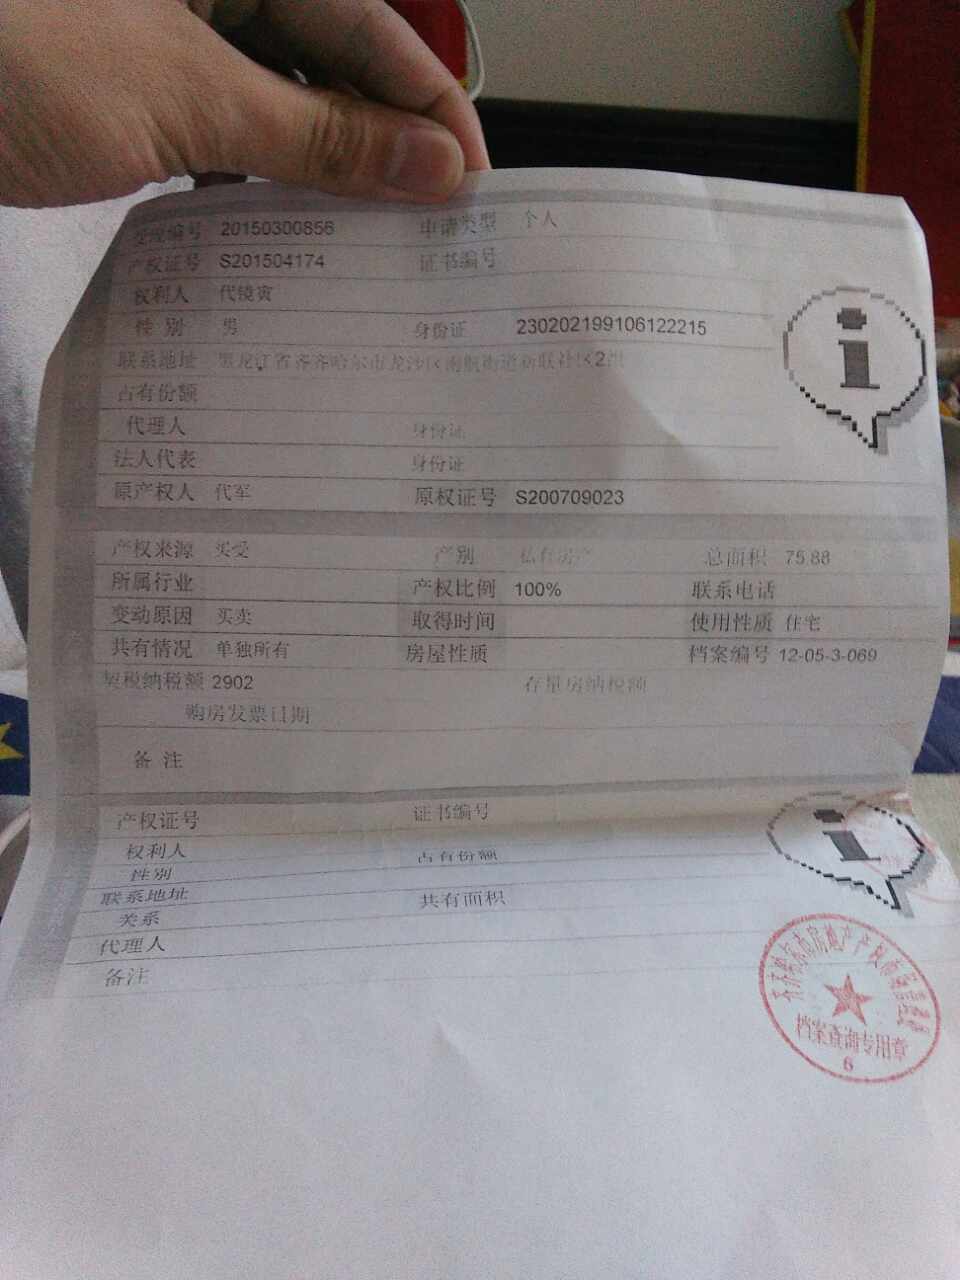 受理编号 20150300856 申请类型 个人
产权证号 S201504174 证书编号
权利人 代镜寅
性别 男 身份证 230202199106122215
联系地址 黑龙江省齐齐哈尔市龙沙区南航街道新联社区2组
占有份额
代理人 身份证
法人代表 身份证
原产权人 代军 原权证号 S200709023
产权来源 买受 产别 私有房产 总面积 75.88
所属行业 产权比例 100% 联系电话
变动原因 买卖 取得时间 使用性质 住宅
共有情况 单独所有 房屋性质 档案编号 12-05-3-069
契税纳税额 2902 存量房纳税额
购房发票日期
备注
产权证号 证书编号
权利人 占有份额
性别
联系地址 共有面积
关系
代理人
备注
齐齐哈尔市房地产产权市场
档案查询专用章
6